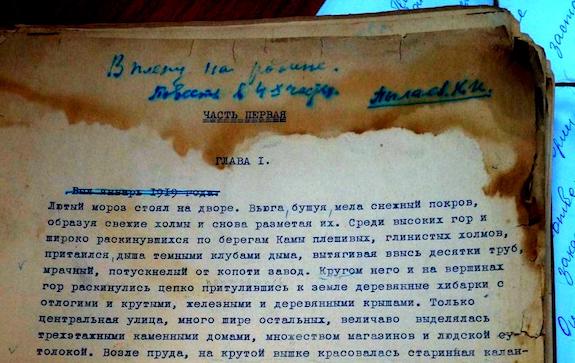 В плену на родине.
Повесть в 4-х частях. Пылаев К.И.
ЧАСТЬ ПЕРВАЯ
ГЛАВА I.
Был январь 1919 года.
Лютый мороз стоял на дворе. Вьюга, бушуя, мела снежный покров,
образуя свежие холмы и снова разметая их. Среди высоких гор и
широко раскинувшихся по берегам Камы плешивых, глинистых холмов,
притаился, дыша темными клубами дыма, вытягивая ввысь десятки труб,
мрачный, потускнелый от копоти завод. Кругом него и на вершинах
гор раскинулись цепко притулившись к земле деревянные хибарки с
отлогими и крутыми, железными и деревянными крышами. Только
центральная улица, много шире остальных, величаво выделялась
трехэтажными каменными домами, множеством магазинов и людской су-
толокой. Возле пруда, на крутой вышке красовалась старинная калан-